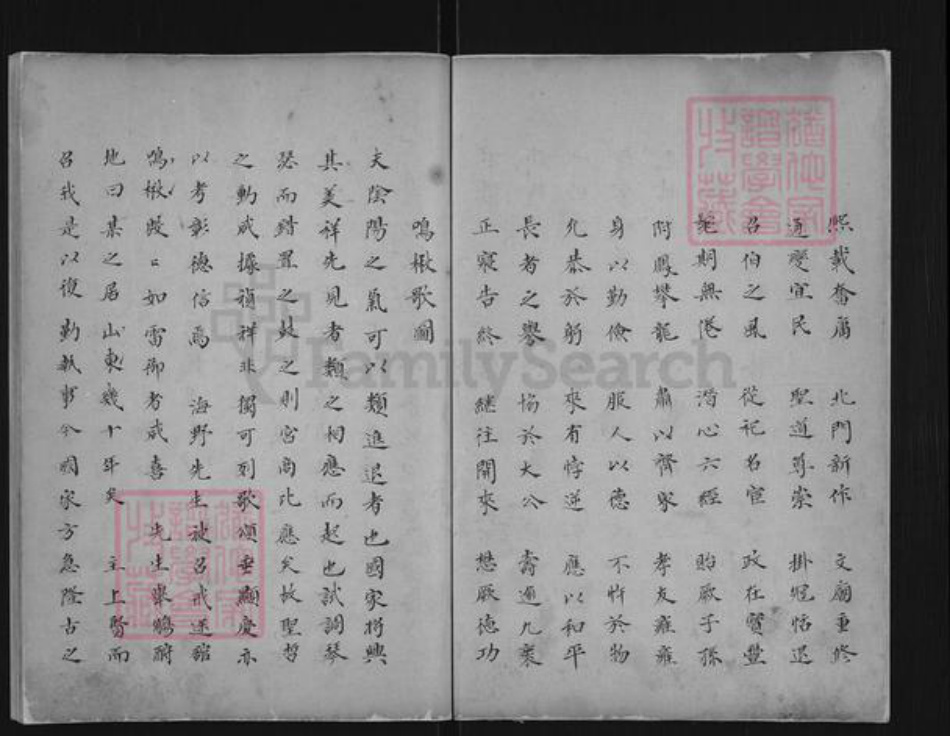 熙載奮庸　北門新作　文廟重修
通變宜民　聖道尊崇　掛冠恬退
召伯之風　從祀名宦　政在寶豐
耄期無倦　潛心六經　貽厥子孫
附鳳攀龍　肅以齊家　孝友雍雍
身以勤儉　服人以德　不忤於物
允恭於躬　來有悖逆　應以和平
長者之譽　協於大公　壽逾九袠
正寢告終　繼往開來　懋厥德功
鳴楸歌圖
夫陰陽之氣可以類進退者也國家將興
其美祥先見者類之相應而起也試調琴
瑟而錯置之鼓之則宮商比應矣故聖哲
之動咸據禎祥非獨可列歌頌垂顯慶亦
以考彰德信焉　海野先生被召戒途舘
鳴楸殷殷如雷御者咸喜　先生舉觴酹
地曰某之居山東幾十年矣　主上賢而
召我是以復勤執事今國家方急隆古之
FamilySearch